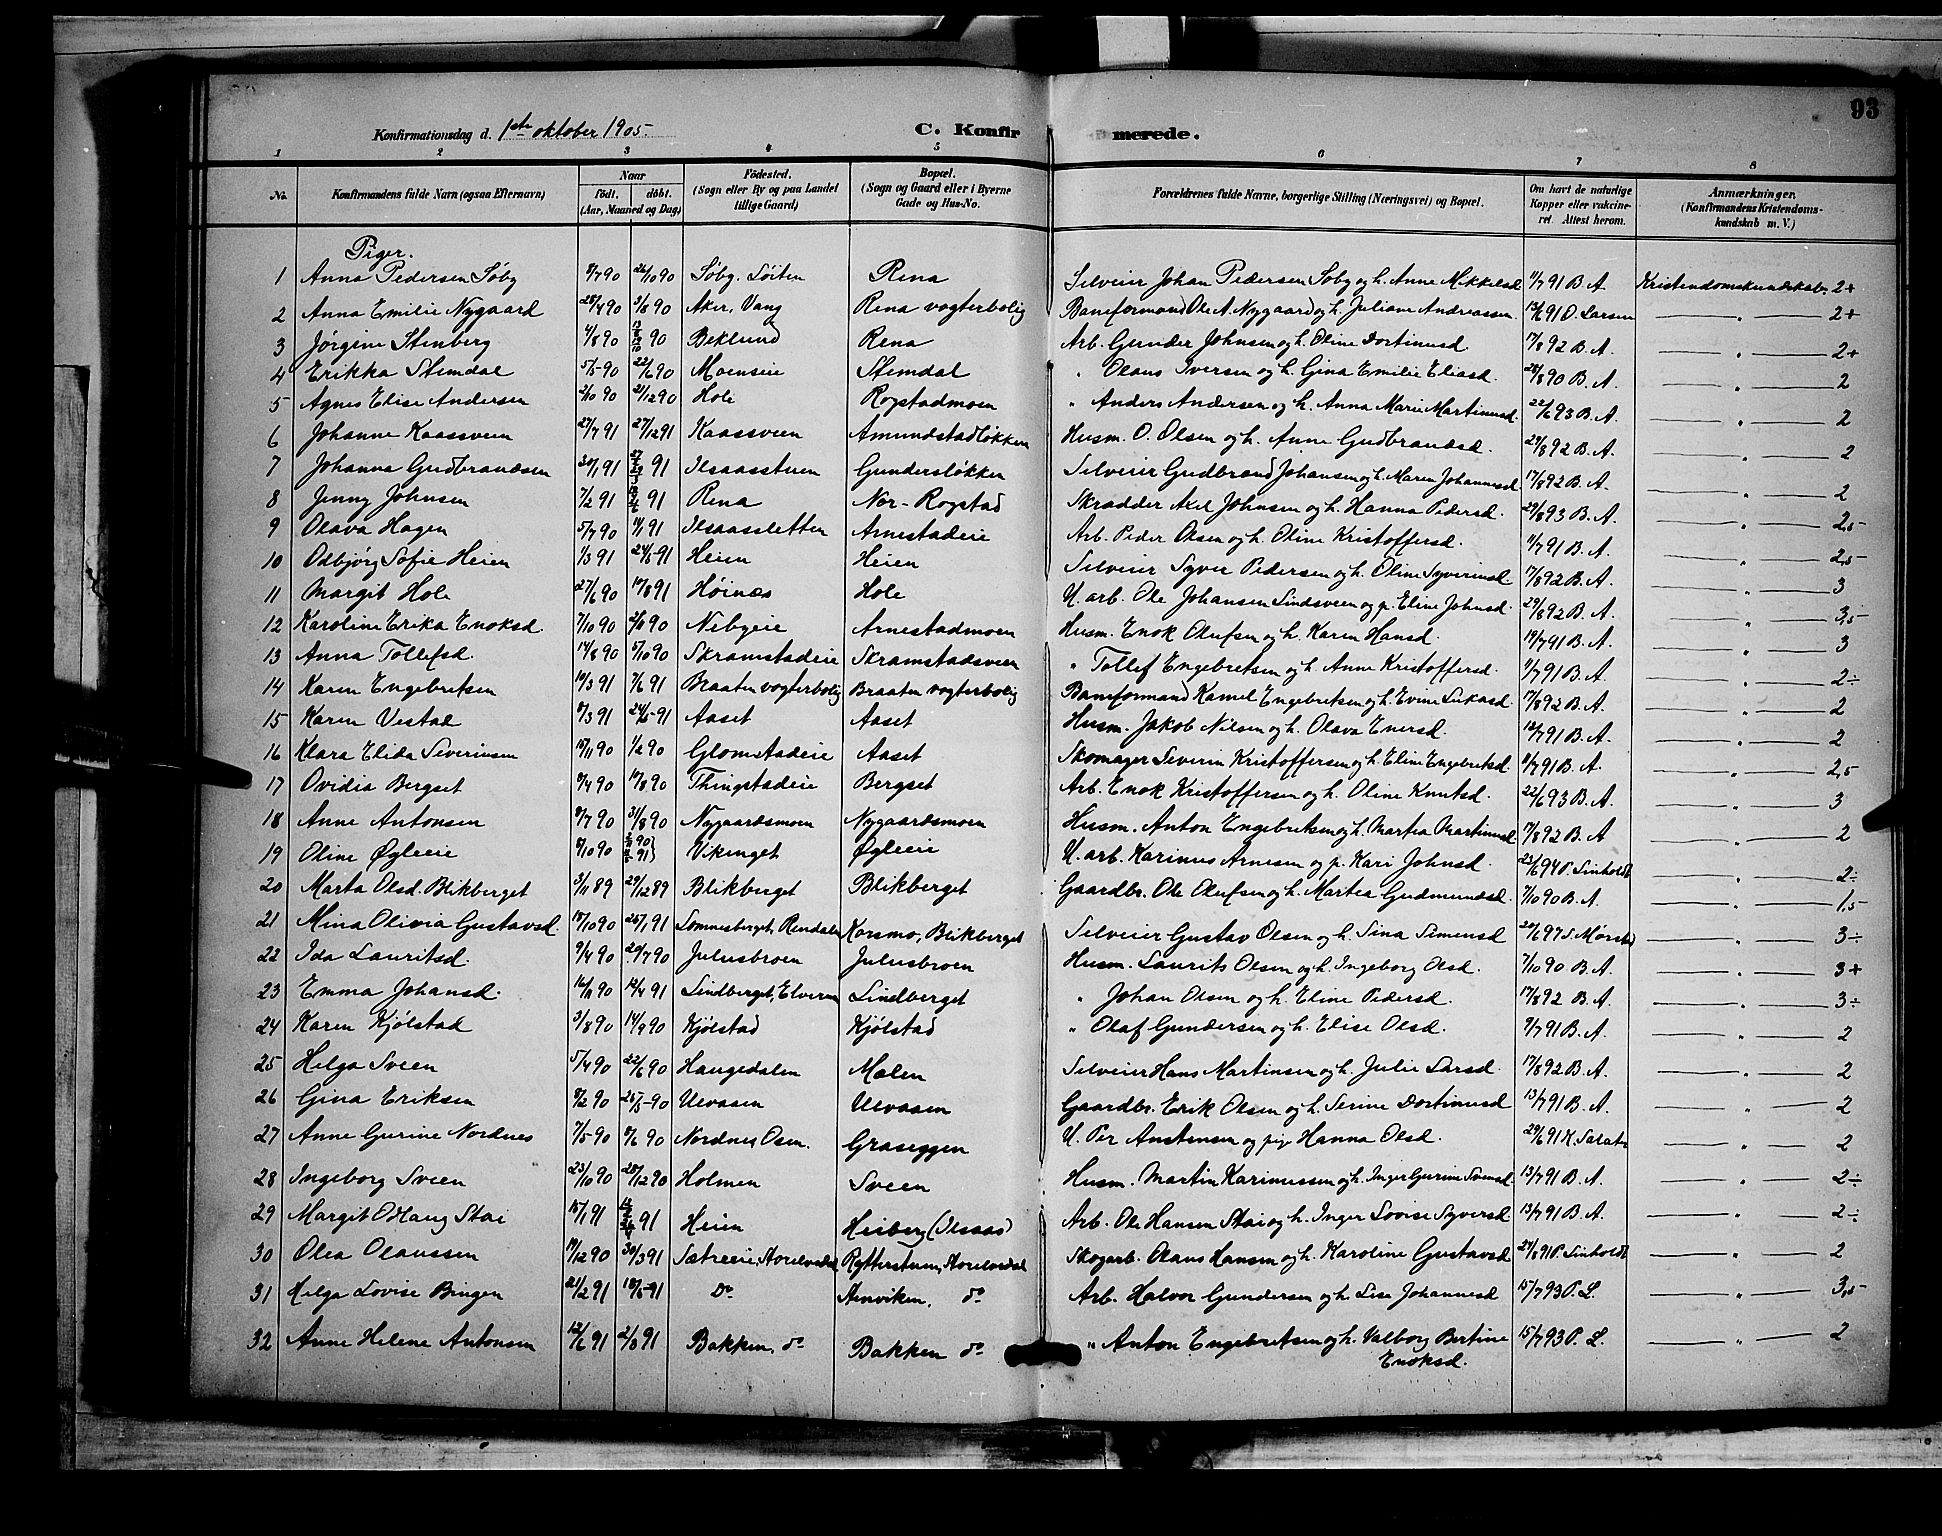 93
Konfirmationsdag d. 1ste oktober 1905.
C. Konfirmerede.
1 2 3 4 5 6 7 8
No. Konfirmandens fulde Navn (ogsaa Efternavn) Naar født. døbt. (Aar, Maaned og Dag) Fødested. (Sogn eller By og paa Landet tillige Gaard) Bopæl. (Sogn og Gaard eller i Byerne Gade og Hus-No. Forældrenes fulde Navne, borgerlige Stilling (Næringsvei) og Bopæl. Om havt de naturlige Kopper eller vakcineret. Attest herom. Anmærkninger. (Konfirmandens Kristendomskundskab m. V.)
Piger.
1 Anna Pedersen Søby 8/7 90 26/10 90 Søby. Løiten Rena Selveier Johan Pedersen Søby og h. Anne Mikkelsd 11/7 91 B. A. Kristendomskundskab. 2+
2 Anna Emilie Nygaard 28/4 90 3/8 90 Aker, Vang Rena vogterbolig Baneformand Ole A. Nygaard og h. Juliane Andreassen 13/6 91 O. Larsen — " — 2+
3 Jørgine Stenberg 4/8 90 90 Beklund Rena Arb. Gunder Johnsen og h. Oline Dortinusd. 17/8 92 B. A. — " — 2+
4 Erikka Stemdal 5/5 90 22/6 90 Moenseie Stemdal " Olaus Iversen og h. Gina Emilie Eliasd. 28/8 90 B. A. — " — 2
5 Agnes Elise Andersen 2/10 90 21/12 90 Hole Rogstadmoen " Anders Andersen og h. Anna Marie Martinusd. 22/6 93 B. A. — " — 2
6 Johanne Kaassveen 27/7 91 27/12 91 Kaassveen Amundstadløkken Husm. O. Olsen og h. Anne Gudbrandsd. 29/8 92 B. A. — " — 2
7 Johanna Gudbrandsen 30/1 91 91 Ilsaasstuen Gundersløkken Selveier Gudbrand Johansen og h. Maren Johannesd. 17/8 92 B. A. — " — 2
8 Jenny Johnsen 7/2 91 91 Rena Nor-Rogstad Skrædder Axel Johnsen og h. Hanna Pedersd. 29/8 93 B. A. — " — 2,5
9 Olava Hagen 5/7 90 11/1 91 Ilsaassletten Arnestadeie Arb. Peder Olsen og h. Oline Kristoffersd. 11/7 91 B. A. — " — 2,5
10 Odbjørg Sofie Heien 1/3 91 24/5 91 Heien Heien Selveier Syver Pedersen og h. Oline Syverinsd. 17/8 92 B. A. — " — 3
11 Margit Hole 27/6 90 19/8 91 Høinæs Hole U. arb. Ole Johansen Lindsveen og p. Eline Johnsd. 29/8 92 B. A. — " — 3,5
12 Karoline Erika Enoksd. 7/10 90 90 Nebyeie Arnestadmoen Husm. Enok Olufsen og h. Karen Hansd. 19/7 91 B. A. — " — 3
13 Anna Tollefsd. 14/8 90 5/10 90 Skramstadeie Skramstadsveen " Tollef Engebretsen og h. Anne Kristoffersd. 9/7 91 B. A. — " — 2÷
14 Karen Engebretsen 14/3 91 7/6 91 Braaten vogterbolig Braaten vogterbolig Baneformand Kamel Engebretsen og h. Evine Lukasd. 17/8 92 B. A. — " — 2
15 Karen Vestad 8/3 91 24/5 91 Aaset Aaset Husm. Jakob Nilsen og h. Olava Enersd. 12/7 91 B. A. — " — 2
16 Klara Elida Severinsen 15/11 90 1/2 90 Glomstadeie Aaset Skomager Severin Kristoffersen og h. Eline Engebretsd. 8/7 91 B. A. — " — 2,5
17 Ovidia Bergset 8/4 90 17/8 90 Thingstadeie Bergset Arb. Enok Kristoffersen og h. Oline Knutsd. 22/6 93 B. A. — " — 3
18 Anne Antonsen 8/7 90 31/8 90 Nygaardsmoen Nygaardsmoen Husm. Anton Engebretsen og h. Martea Martinusd 17/8 92 B. A — " — 2
19 Oline Øgleeie 8/10 90 90 91 Vikenget Øgleeie U. arb. Karinus Arnesen og p. Kari Johnsd. 23/6 94 P. Linholdt — " — 2÷
20 Marta Olsd. Blikberget 3/11 89 29/12 89 Blikberget Blikberget Gaardbr. Ole Olufsen og h. Martea Gudmundsd. 7/10 90 B. A. — " — 1,5
21 Mina Olivia Gustavsd. 18/10 90 26/1 91 Lomnesberget, Rendalen Korsmo, Blikberget Selveier Gustav Olsen og h. Sina Simensd 20/6 97 S. Mørstad — " — 3÷
22 Ida Lauritsd. 9/4 90 20/7 90 Julusbroen Julusbroen Husm. Laurits Olsen og h. Ingeborg Olsd. 7/10 90 B. A. — " — 3+
23 Emma Johansd. 16/11 90 12/4 91 Lindberget, Elverum Lindberget " Johan Olsen og h. Eline Pedersd. 17/8 92 B. A. — " — 3÷
24 Karen Kjølstad 3/8 90 14/9 90 Kjølstad Kjølstad " Olaf Gundersen og h. Elise Olsd. 9/7 91 B. A. — " — 2
25 Helga Sveen 5/4 90 22/6 90 Haugedalen Mælen Selveier Hans Martinsen og h. Julie Larsd. 17/8 92 B. A. — " — 2
26 Gina Eriksen 8/2 90 26/5 90 Ulvaaen Ulvaaen Gaardbr. Erik Olsen og h. Serine Dortinusd 13/7 91 B. A. — " — 2
27 Anne Gurine Nordnes 7/5 90 8/6 90 Nordnes, Osen. Graseggen U. Per Anstensen og pige Hanna Olsd. 29/6 91 — " — 2
28 Ingeborg Sveen 23/10 90 28/12 90 Holmen Sveen Husm. Martin Karinussen og h. Inger Gurine Svensd. 13/7 91 B. A. — " — 2÷
29 Margit O. Haug Stai 15/1 91 91 Heien Heiberg (Ilsaas) Arb. Ole Hansen Stai og h. Inger Lovise Syversd 13/7 91 B. A. — " — 2÷
30 Olea Olaussen 17/12 90 30/3 91 Sætreeie, Storelvedal Rytterstuen, Storelvedal Skogarb. Olaus Hansen og h. Karoline Gustavsd. 24/8 91 P. Linholdt — " — 2
31 Helga Lovise Bingen 21/2 91 18/5 91 Do Stenviken, do Arb. Halvor Gundersen og h. Lise Johannesd 15/7 93 P. L. — " — 3,5
32 Anne Helene Antonsen 12/6 91 2/8 91 Bakken, do Bakken do " Anton Engebretsen og h. Valborg Bertine Enoksd. 15/7 93 P. L. — " — 2